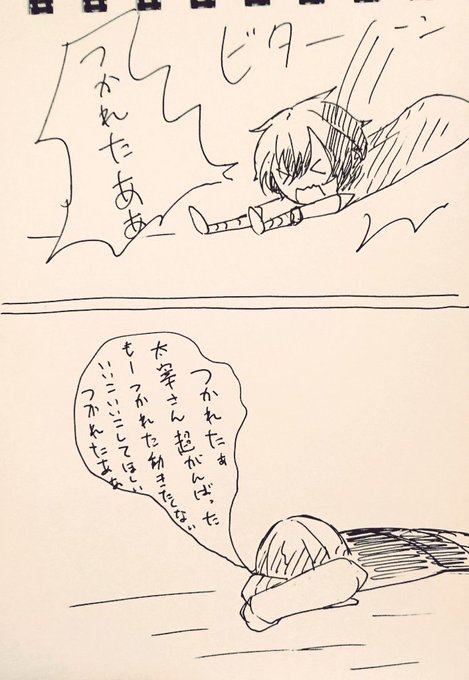 ビターーーン
つかれたあぁ
つかれたぁ
太宰さん超がんばった
もーつかれた動きたくない
いいこいいこしてほしい
つかれたあぁ